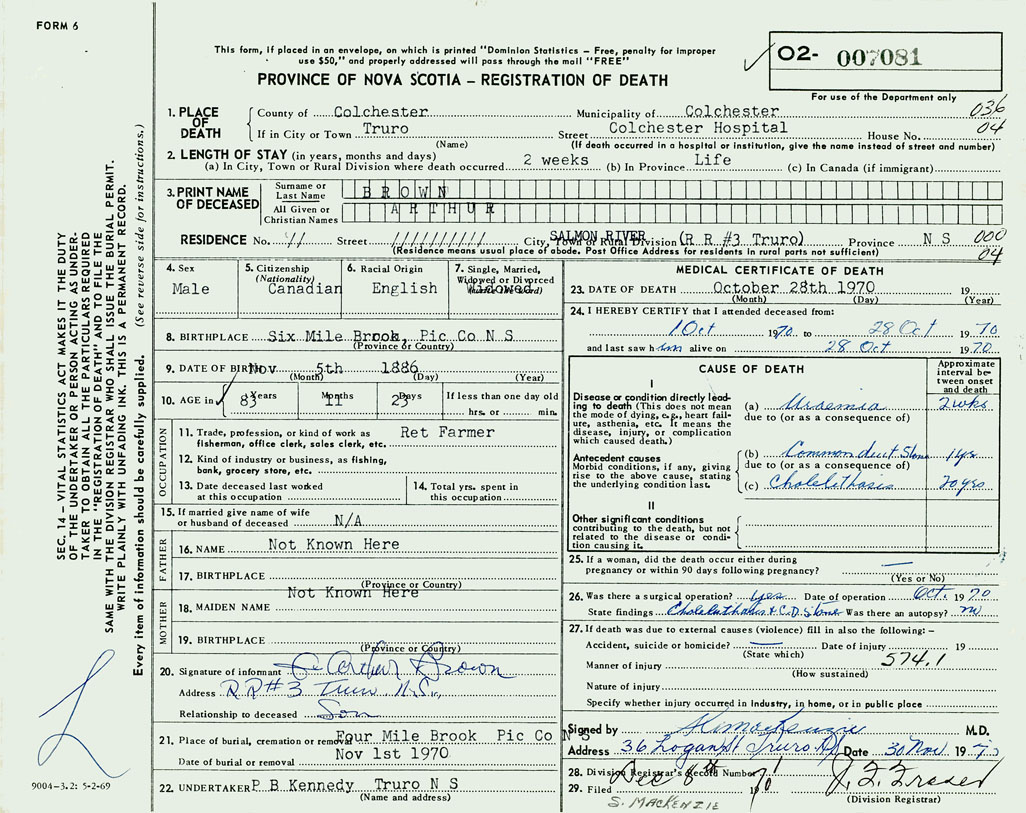 FORM 6
This form, if placed in an envelope, on which is printed "Dominion Statistics – Free, penalty for improper
use $50," and properly addressed will pass through the mail "FREE"
PROVINCE OF NOVA SCOTIA – REGISTRATION OF DEATH
02- 007081
For use of the Department only
SEC. 14 – VITAL STATISTICS ACT MAKES IT THE DUTY
OF THE UNDERTAKER OR PERSON ACTING AS UNDER-
TAKER TO OBTAIN ALL THE PARTICULARS REQUIRED
IN THE "REGISTRATION OF DEATH" AND TO FILE THE
SAME WITH THE DIVISION REGISTRAR WHO SHALL ISSUE THE BURIAL PERMIT.
WRITE PLAINLY WITH UNFADING INK. THIS IS A PERMANENT RECORD.
Every item of information should be carefully supplied. (See reverse side for instructions.)
1. PLACE OF DEATH
County of Colchester Municipality of Colchester 036
If in City or Town Truro Street Colchester Hospital House No. 04
(Name) (If death occurred in a hospital or institution, give the name instead of street and number)
2. LENGTH OF STAY (in years, months and days)
(a) In City, Town or Rural Division where death occurred 2 weeks (b) In Province Life (c) In Canada (if immigrant)
3. PRINT NAME OF DECEASED
Surname or Last Name BROWN
All Given or Christian Names ARTHUR
RESIDENCE No. // Street ////////// City, Town or Rural Division SALMON RIVER (R R #3 Truro) Province N S 000
(Residence means usual place of abode. Post Office Address for residents in rural parts not sufficient) 04
4. Sex Male
5. Citizenship (Nationality) Canadian
6. Racial Origin English
7. Single, Married, Widowed or Divorced Widowed
8. BIRTHPLACE Six Mile Brook, Pic Co N S
(Province or Country)
9. DATE OF BIRTH Nov 5th 1886
(Month) (Day) (Year)
10. AGE in 83 Years 11 Months 23 Days If less than one day old
hrs. or min.
OCCUPATION
11. Trade, profession, or kind of work as Ret Farmer
fisherman, office clerk, sales clerk, etc.
12. Kind of industry or business, as fishing,
bank, grocery store, etc.
13. Date deceased last worked
at this occupation
14. Total yrs. spent in
this occupation
15. If married give name of wife
or husband of deceased N/A
FATHER
16. NAME Not Known Here
17. BIRTHPLACE
(Province or Country)
MOTHER
Not Known Here
18. MAIDEN NAME
19. BIRTHPLACE
(Province or Country)
20. Signature of informant Arthur Brown
Address RR#3 Truro N.S.
Relationship to deceased Son
21. Place of burial, cremation or removal Four Mile Brook Pic Co N S
Date of burial or removal Nov 1st 1970
22. UNDERTAKER P B Kennedy Truro N S
(Name and address)
9004-3.2: 5-2-69
MEDICAL CERTIFICATE OF DEATH
23. DATE OF DEATH October 28th 1970 19
(Month) (Day) (Year)
24. I HEREBY CERTIFY that I attended deceased from:
1 Oct 1970 to 28 Oct 1970
and last saw him alive on 28 Oct 1970
CAUSE OF DEATH
Approximate interval between onset and death
I
Disease or condition directly lead-
ing to death (This does not mean
the mode of dying, e.g., heart fail-
ure, asthenia, etc. It means the
disease, injury, or complication
which caused death.)
(a) Uraemia 2 wks
due to (or as a consequence of)
Antecedent causes
Morbid conditions, if any, giving
rise to the above cause, stating
the underlying condition last.
(b) Common duct Stone 1 yr
due to (or as a consequence of)
(c) Cholelithasis 20 yrs
II
Other significant conditions
contributing to the death, but not
related to the disease or condi-
tion causing it.
25. If a woman, did the death occur either during
pregnancy or within 90 days following pregnancy? —
(Yes or No)
26. Was there a surgical operation? yes Date of operation Oct. 1970
State findings Cholelithasis & C.D. Stone Was there an autopsy? no
27. If death was due to external causes (violence) fill in also the following: –
Accident, suicide or homicide? — Date of injury 19
(State which) 574.1
Manner of injury
(How sustained)
Nature of injury
Specify whether injury occurred in industry, in home, or in public place
Signed by M.D.
Address 36 Logan St Truro Date 30 Nov 1970
28. Division Registrar's Record Number
29. Filed Dec 8th 1970 J. F. Fraser
S. MACKENZIE (Division Registrar)